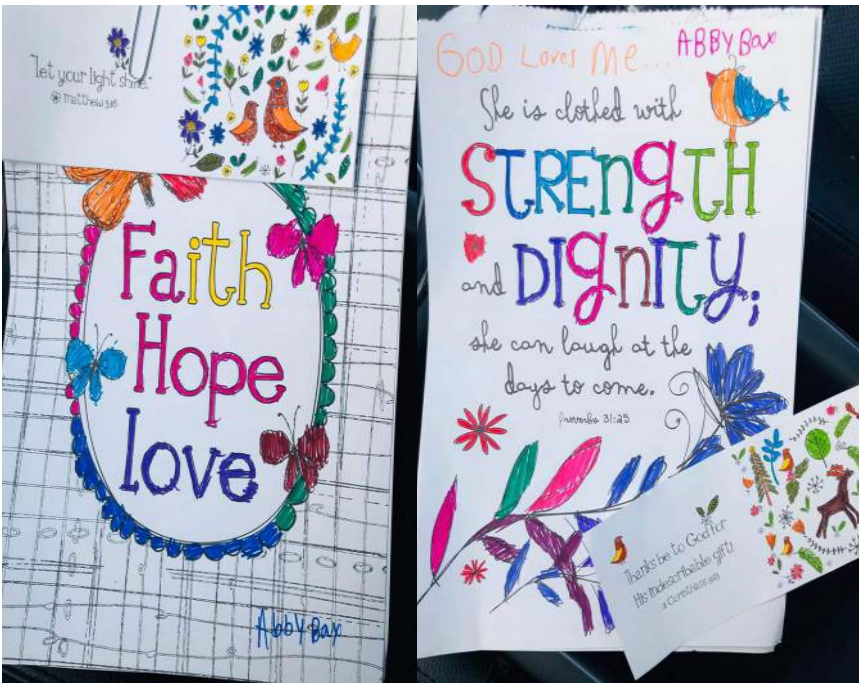 "let your light shine."
Matthew 5:16
Faith
Hope
love
Abby Bax
GOD Loves Me...
ABBY Bax
She is clothed with
STRENGTH
and DIGNITY;
she can laugh at the
days to come.
Proverbs 31:25
Thanks be to God for
His indescribable gift!
2 Corinthians 9:15